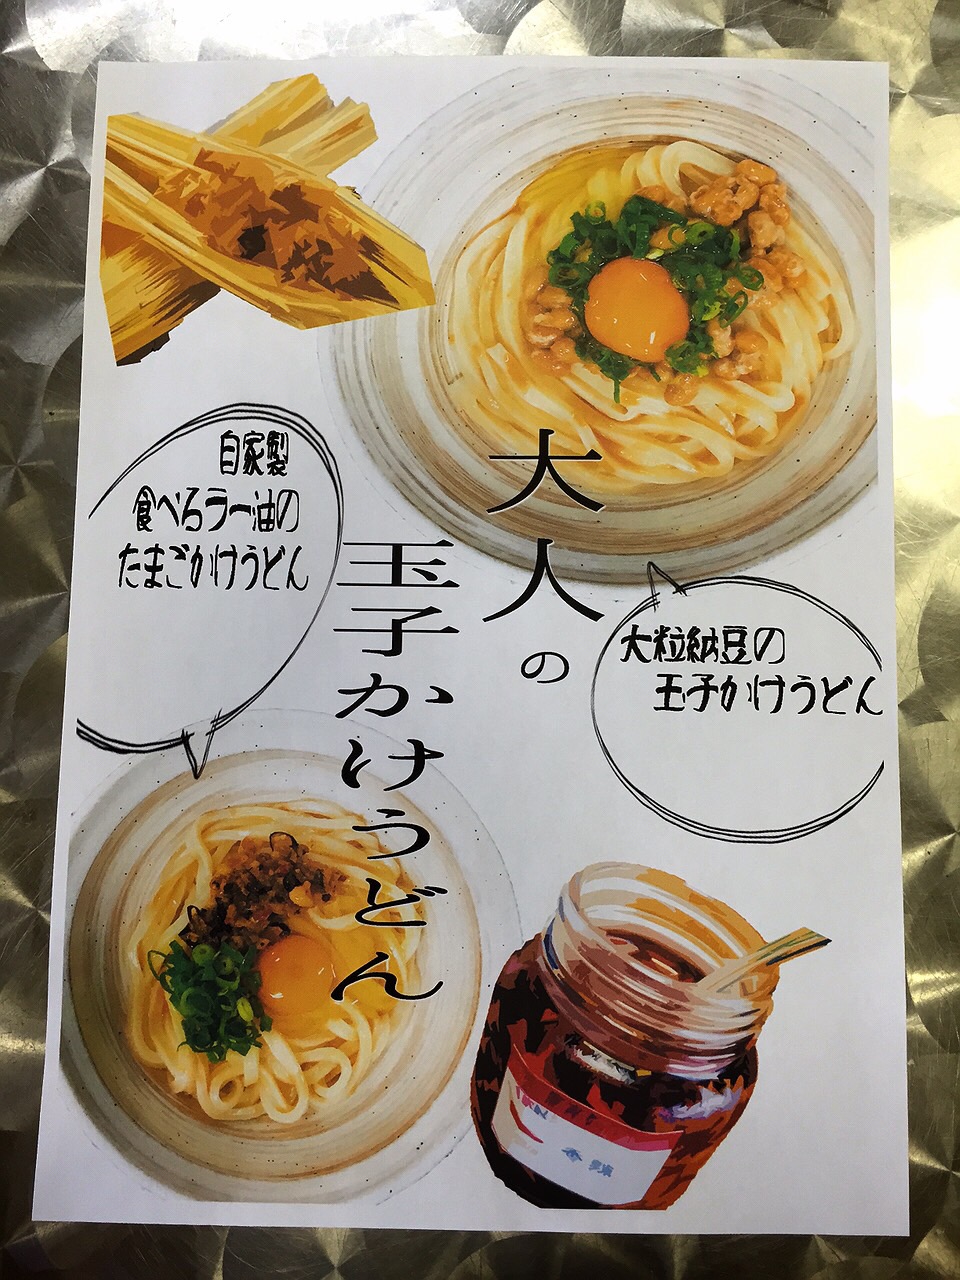 大人の
玉子かけうどん
自家製
食べるラー油の
たまごかけうどん
大粒納豆の
玉子かけうどん